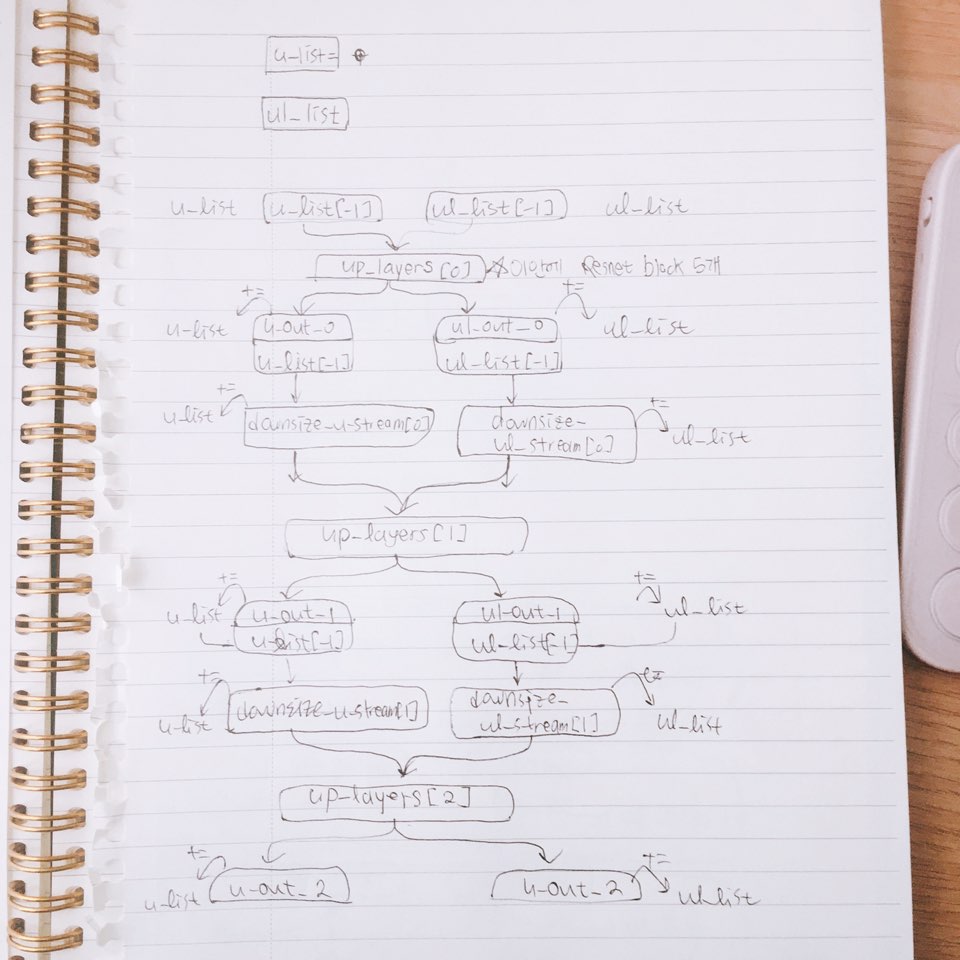 u_list=
ul_list
u_list u_list[-1] ul_list[-1] ul_list
up_layers[0] ☆이안에 Resnet block 5개
+= +=
u-list u-out-0 ul-out-0 ul-list
u_list[-1] ul_list[-1]
+= +=
u_list downsize_u-stream[0] downsize- ul_list
ul_stream[0]
up-layers[1]
+= +=
u-list u-out-1 ul-out-1 ul_list
u-list[-1] ul-list[-1]
+= +=
u-list downsize-u-stream[1] downsize- ul_list
ul-stream[1]
up-layers[2]
+= +=
u-list u-out-2 u-out-2 ul-list